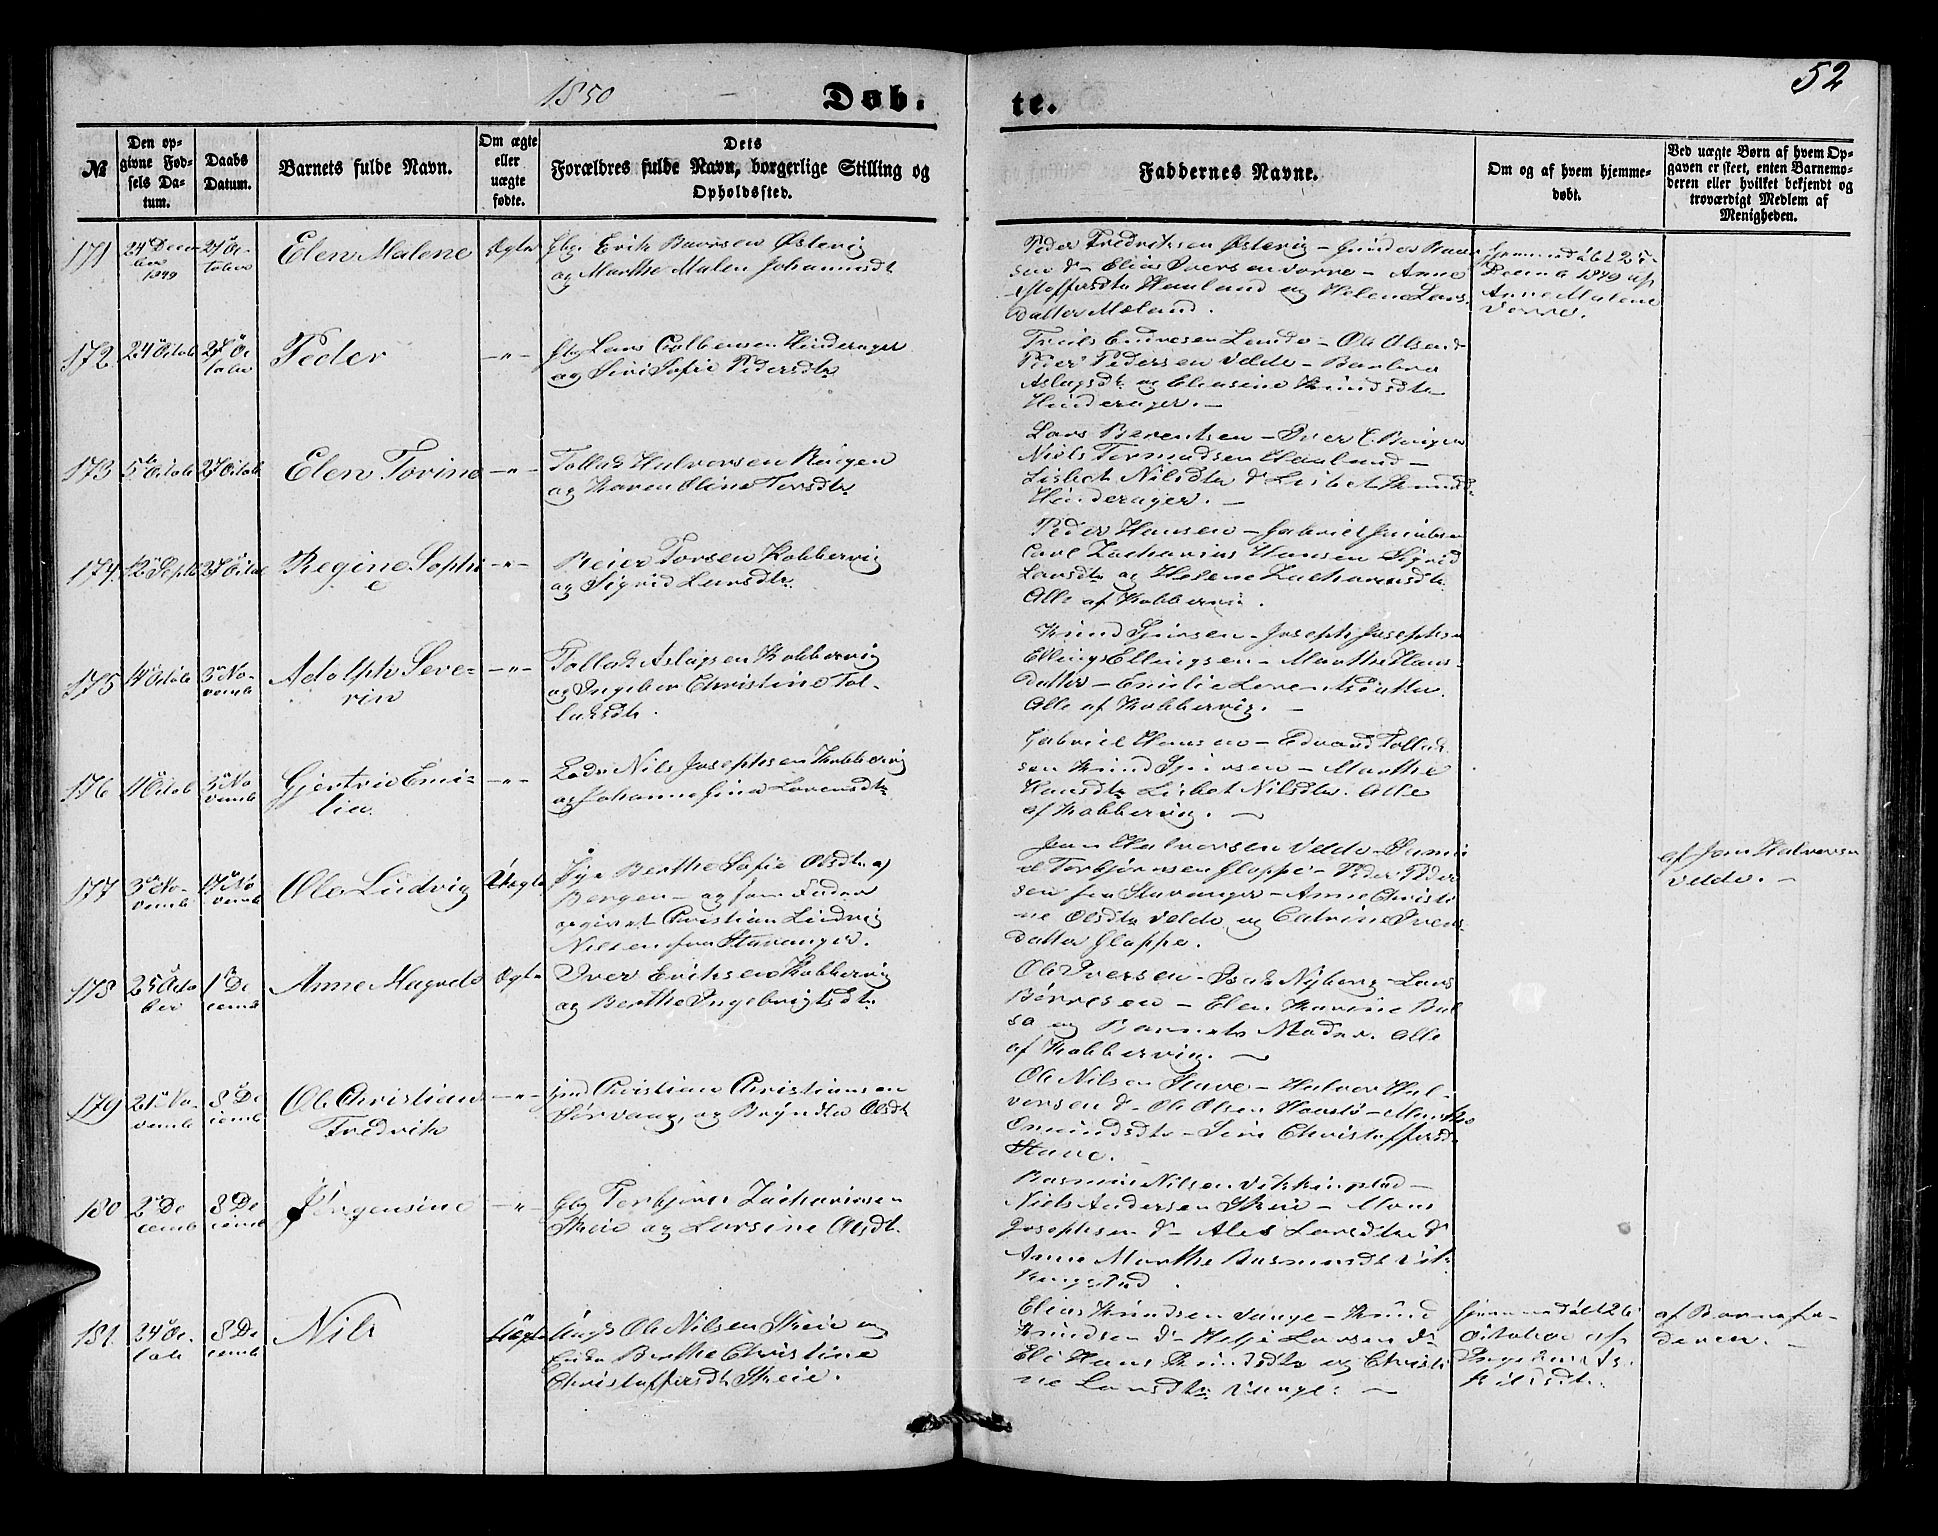 1850
Døb-
te.
52
№
Den op-
givne Fød-
sels Da-
tum.
Daabs
Datum.
Barnets fulde Navn.
Om ægte
eller
uægte
fødte.
Dets
Forældres fulde Navn, borgerlige Stilling og
Opholdssted.
Faddernes Navne.
Om og af hvem hjemme-
døbt.
Ved uægte Børn af hvem Op-
gaven er skeet, enten Barnemo-
deren eller hvilket bekjendt og
troværdigt Medlem af
Menigheden.
171
24 Decem
ber
1849
27 Oc-
tober
Elen Malene
Ægte
Gbr Erik Østevig
og Marthe Malen Johannsdt
Peder Fredriksen Østevig –
Elias Iversen – Anne
Haaland og Helene Lars-
datter Mæland.
Hjemmedøbt 25
Decemb 1849 af
Anne Malene
172
24 Octob
27 Oc
tober
Peder
–"–
Gbr Lars Colbensen Hinderager
og Siri Sofie Pedersdtr
Endresen – Ole Olsen
Peder Pedersen Velde – Barbro
Aslagsdt og Elensine Knudsdtr
Hinderager. –
173
5te Octob
27 Octob
Elen Torine
–"–
Tollak Halvorsen Ringen
og Karen Oline Torsdtr
Lars Berentsen – Iver
Niels Tormodsen Haaland –
Lisbet Nilsdtr & Lisbet Knuds
Hinderager. –
174
12 Septb
27 Octob
Regine Sophi
e
–"–
Reier Torsen Kobbervig
og Sigrid Larsdtr
Peder Hansen – Gabriel Jacobsen
Carl Zacharias Hansen Sigrid
Larsdtr og Helene Zachariasdtr
Alle af Kobbervig.
175
14 Octob
3 No-
vemb
Adolph Seve-
rin
–"–
Tollak Aslagsen Kobbervig
og Ingebor Christine Tol-
laksdtr.
Knud – Joseph Josephsen
Elling Ellingsen – Marthe Hans-
datter – Emilie Lorentsdatter.
Alle af Kobbervig. –
176
4 Octob
3 No
vemb
Gjertrud Emi-
lia.
–"–
Nils Josephsen Kobbervig
og Johanne Lorensdtr
Gabriel Hansen – Edvard Tollak
sen Knud – Marthe
Hansdtr Lisbet Nilsdtr. Alle
af Kobbervig. –
177
3 No-
vemb
17 No
vemb
Ole Ludvig
Uægte
Pige Berthe Sofie Olsdtr af
Bergen – og som Fader
opgivet Christian Ludvig
Nilsen fra Stavanger.
Jan Halvorsen Velde –
Torbjørnsen Gloppe – Peder Peder
sen fra Stavanger – Anne Christi
ne Olsdtr Velde og Catrine Ivers
datter Gloppe.
af Jan Halvorsen
Velde. –
178
25 Octo
ber
1 De
cemb
Anne Magrete
Ægte
Iver Eriksen Kobbervig
og Berthe Ingebrigtsdtr
Ole Iversen – Isak Nyborg – Lars
Børresen – Elen Karine
og Barnets Moder. Alle
af Kobbervig. –
179
21 No-
vemb
8 De
cemb
Ole Christian
Fredrik
–"–
Christian Christiansen
Sørvaag, og Bryndte Olsdt
Ole Nilsen Stave – Halvor Hal-
vorsen – Ole Olsen – Marthe
Omundsdtr – Siri Christoffersdt
Stave.
180
2 De
cemb
8 De
cemb
Jørgensine
–"–
Gbr Torbjørn Zachariasen
Skeie og Larsine Olsdt.
Rasmus Nilsen Vikkingstad –
Niels Andersen Skeie – Mons
Josephsen – Ales Larsdtr &
Anne Marthe Rasmusdt Vik-
kingstad.
181
24 Oc
tob
8 De
cemb
Nils
Uægte
Ungk Ole Nilsen Skeie og
Enke Berthe Christine
Christoffersdt Skeie.
Elias Knudsen Vaage – Knud
Knudsen – Helje Larsen
Eli Knudsdtr og Christi
ne Larsdtr Vaage. –
Hjemmedøbt 26
October af
af Barnefa-
deren. –